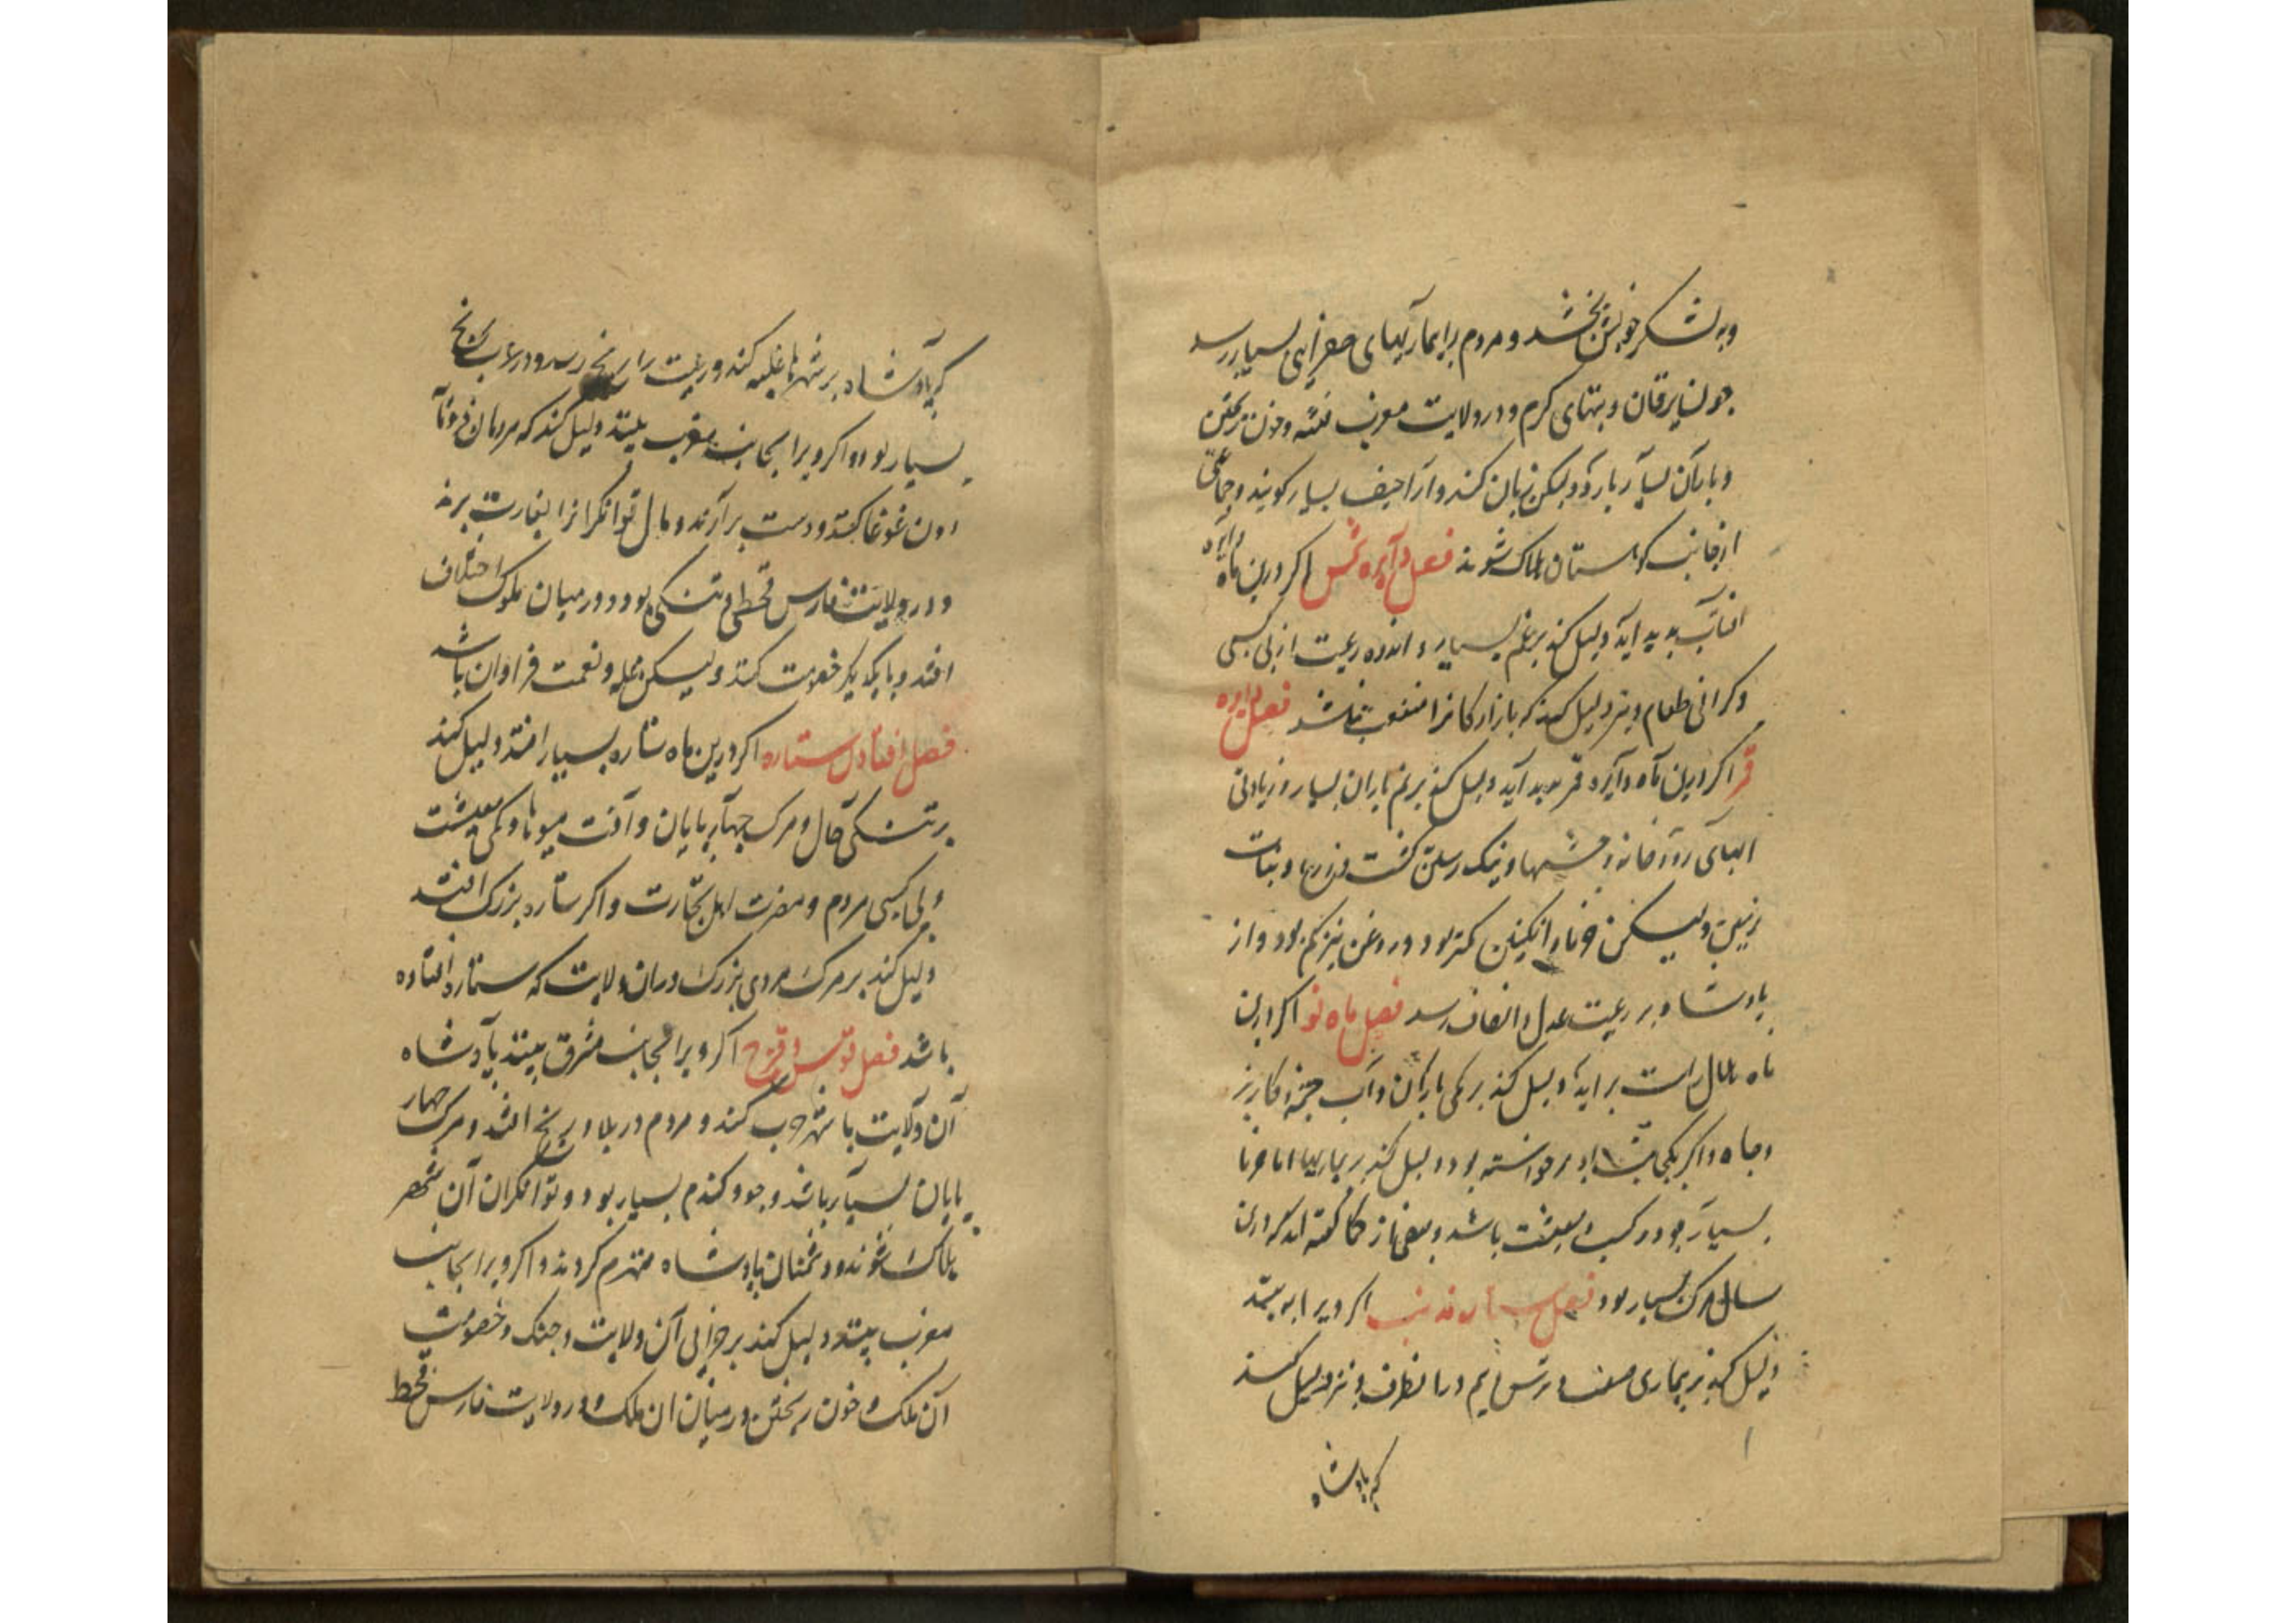 وبه لشکر خویش بخشد و مردم را بیماریهای صفرایی بسیار رسد
چون یرقان و تبهای کرم و در ولایت مغرب فتنه و خون ریختن
و باران بسیار بارد ولیکن زیان کند و اراجیف بسیار کویند و جماعتی
از جانب کوهستان هلاک شوند فصل دایره شمس اکر درین ماه دایره
افتاب پدید اید دلیل کند بر غم بسیار و اندوه رعیت از بی کسبی
و کرانی طعام و نیز دلیل کند که بازارکانرا منفعت باشد فصل دایره
قمر اکر درین ماه دایره قمر پدید آید دلیل کند بر نم باران بسیار و زیادتی
ابهای رودخانه و چشمها و نیک رستن کشت و زرعها و نبات
زمین ولیکن خرما و انکبین کمتر بود و روغن نیز کم بود و از
پادشاه بر رعیت عدل و انصاف رسد فصل ماه نو اکر درین
ماه هلال راست براید دلیل کند بر کمی باران و آب چشمه و کاریز
و چاه و اکر یکی برخواسته بود دلیل کند بر بیماریها اما خرما
بسیار بود و کسب و معیشت باشد و بعضی از حکما کفته اند که درین
سال مرک بسیار بود فصل ستاره ذو ذنب اکر ویرا به بینند
دلیل کند بر بیماری صعب و ترس و بیم در ان طرف و نیز دلیل کند
که پادشاه
که پادشاه بر شهرها غلبه کند و رعیت را رنج رسد و در عرب رنج
بسیار بود و اکر ویرا بجانب مغرب بینند دلیل کند که مردمان
دون غوغا کنند و دست برآرند و مال توانکرانرا بغارت برند
و در ولایت فارس قحطی و تنکی بود و در میان ملوک اختلاف
افتد و با یکدیکر خصومت کنند ولیکن غله و نعمت فراوان باشد
فصل افتادن ستاره اکر درین ماه ستاره بسیار افتد دلیل کند
بر تنکی حال و مرک چهارپایان و آفت میوها و کمی معیشت
و بی کسبی مردم و مضرت اهل تجارت و اکر ستاره بزرک افتد
دلیل کند بر مرک مردی بزرک دران ولایت که ستاره افتاده
باشد فصل قوس و قزح اکر ویرا بجانب مشرق بینند پادشاه
آن ولایت با شهر حرب کند و مردم در بلا و رنج افتند و مرک چهار
پایان بسیار باشد و جو و کندم بسیار بود و توانکران آن شهر
هلاک شوند و دشمنان پادشاه منهزم کردند و اکر ویرا بجانب
مغرب بینند دلیل کند بر خرابی آن ولایت و جنک و خصومت
آن ملک و خون ریختن در میان ان ملک و در ولایت فارس قحط